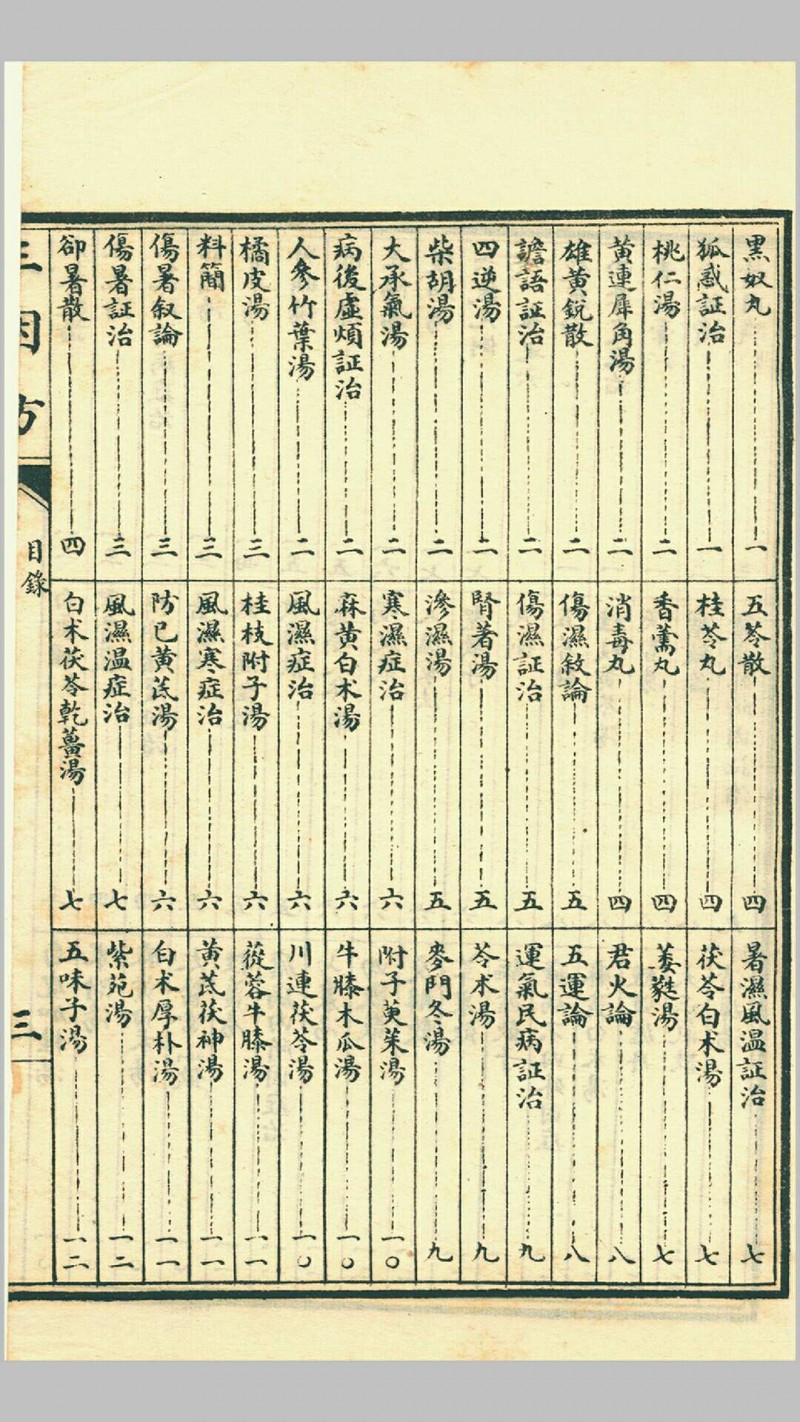 黑奴丸一
狐惑証治一
桃仁湯二
黃連犀角湯二
雄黃銳散二
譫語証治二
四逆湯二
柴胡湯二
大承氣湯二
病後虛煩証治二
人參竹葉湯二
橘皮湯三
料簡三
傷暑叙論三
傷暑証治三
卻暑散四
五苓散四
桂苓丸四
香薷丸四
消毒丸四
傷濕敘論五
傷濕証治五
腎著湯五
滲濕湯五
寒濕症治六
麻黃白朮湯六
風濕症治六
桂枝附子湯六
風濕寒症治六
防已黃芪湯六
風濕溫症治七
白朮茯苓乾薑湯七
暑濕風溫証治七
茯苓白朮湯七
萎蕤湯七
君火論八
五運論八
運氣民病証治九
苓朮湯九
麥門冬湯九
附子茰茱湯一〇
牛膝木瓜湯一〇
川連茯苓湯一〇
蓯蓉牛膝湯一一
黃芪茯神湯一一
白朮厚朴湯一一
紫菀湯一二
五味子湯一二
三因方
目錄
三